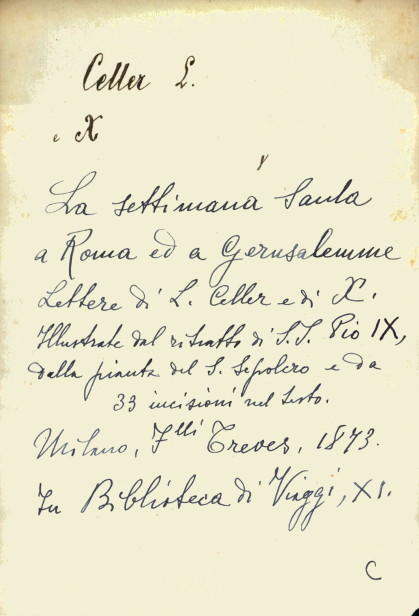 Celler L.
e X
La settimana santa
a Roma ed a Gerusalemme
Lettere di L. Celler e di X.
Illustrate dal ritratto di S.S. Pio IX,
dalla pianta del S. Sepolcro e da
33 incisioni nel testo.
Milano, F.lli Treves, 1873.
In Biblioteca di Viaggi, XI.
C